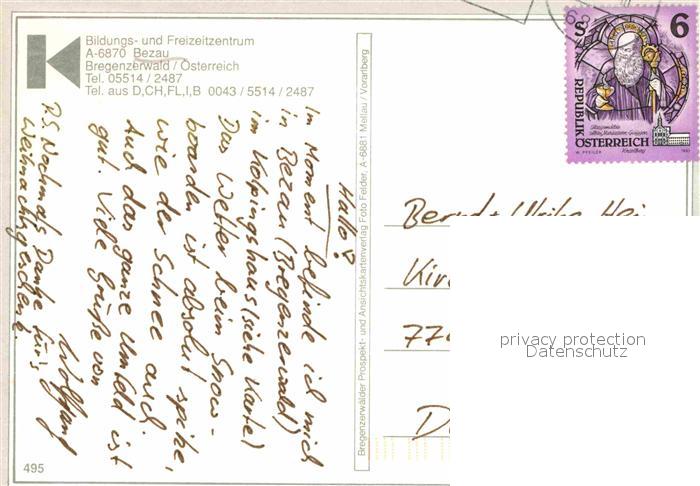 Bildungs- und Freizeitzentrum
A-6870 Bezau
Bregenzerwald / Österreich
Tel. 05514 / 2487
Tel. aus D,CH,FL,I,B 0043 / 5514 / 2487
Hallo!
Im Moment befinde ich mich
in Bezau (Bregenzerwald)
im Kolpingshaus (siehe Karte)
Das Wetter beim Snow-
boarden ist absolut spitze,
wie der Schnee auch
Auch das ganze Umfeld ist
gut. Viele Grüße von
Wolfgang
P.S. Nochmals Danke für's
Weihnachtsgeschenk.
495
Bregenzerwälder Prospekt- und Ansichtskartenverlag Foto Felder, A-6881 Mellau / Vorarlberg
S 6
REPUBLIK
ÖSTERREICH
Vorarlberg
W. PFEILER 1993
Bernd + Ulrike
774
D
privacy protection
Datenschutz